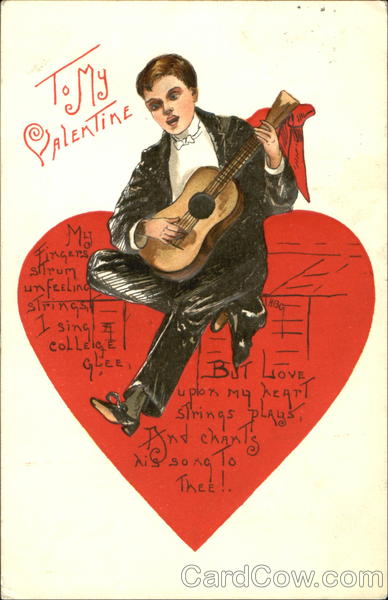 To My
Valentine
My
Fingers
strum
unfeeling
strings,
I sing a
college
glee,
HBG
But Love
upon my heart
strings plays,
And chants
his song to
Thee!.
CardCow.com